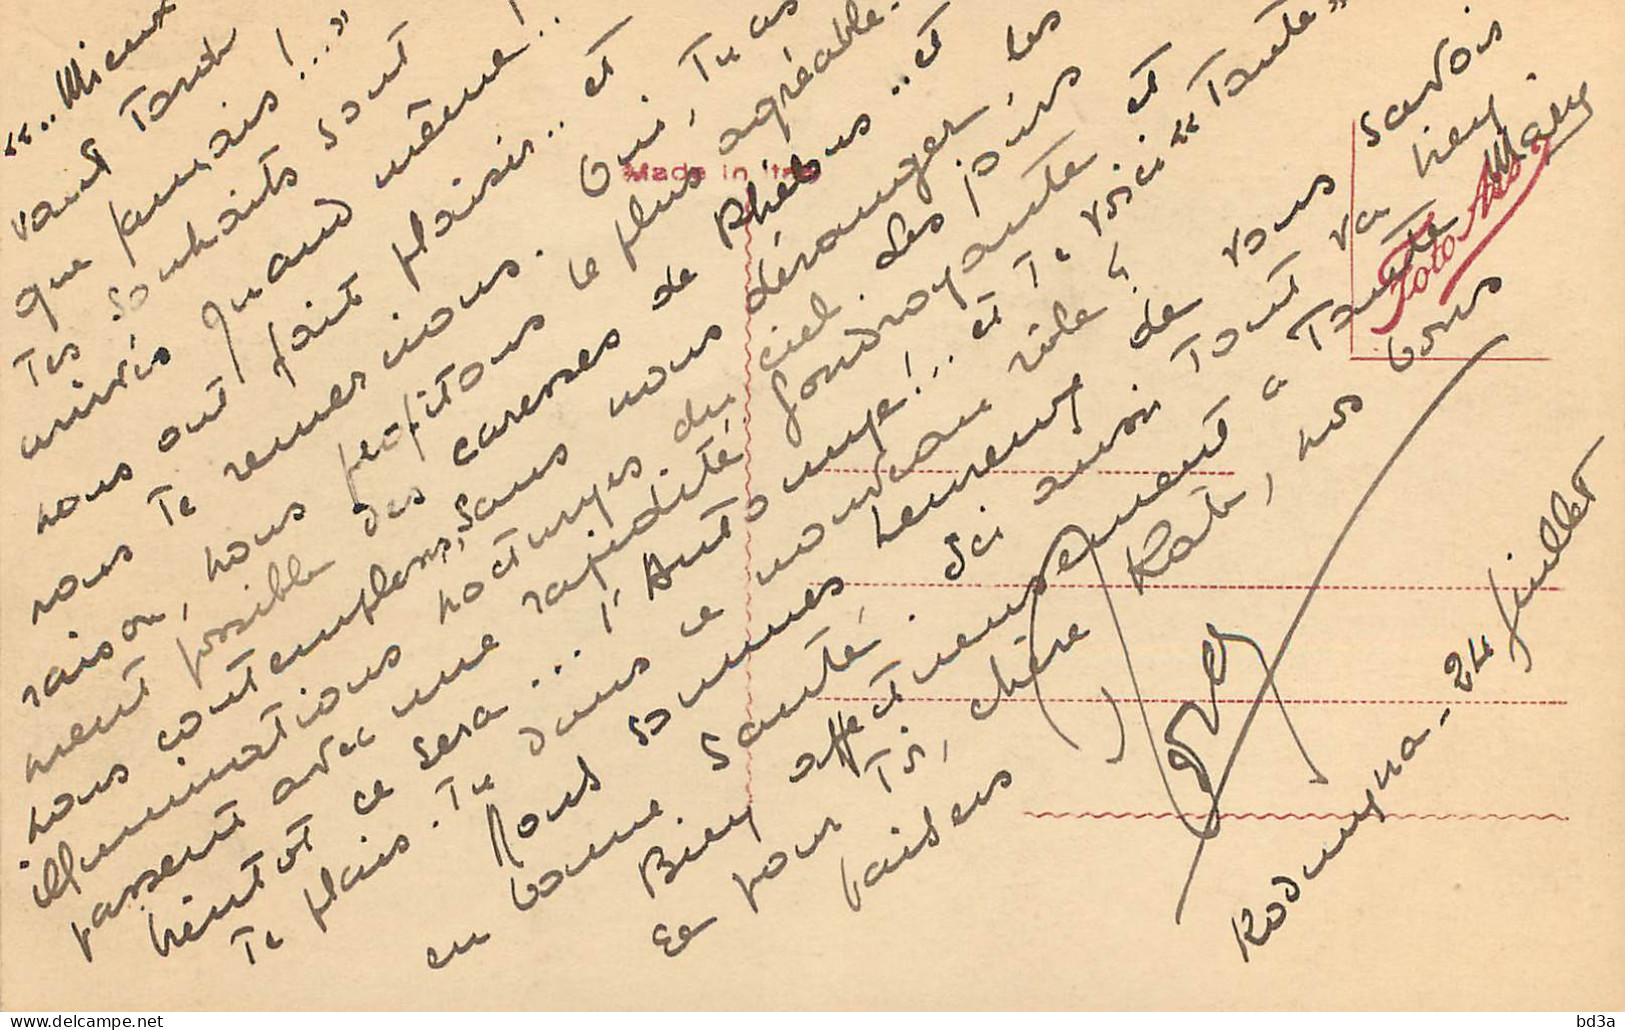 "..Mieux
vaut Tard
que jamais!..."
Tes souhaits sont
arrivés quand même!..
nous ont fait plaisir.. et
nous Te remercions. Oui, Tu as
raison, nous profitons le plus agréable-
ment possible des caresses de Phébus.. et
nous contemplons, sans nous déranger les
illuminations nocturnes du ciel. des jours
passent avec une rapidité foudroyante et
bientôt ce sera... l'Automne!... et Te voici "Tante"
Te plais-Tu dans ce nouveau rôle?
Nous sommes heureux de vous savoir
en bonne santé. Ici aussi Tout va bien
Bien affectueusement à Tante Mary
et pour Toi, chère Kate, nos bons
baisers
Rodmyna - 24 juillet
Made in Italy
bd3a